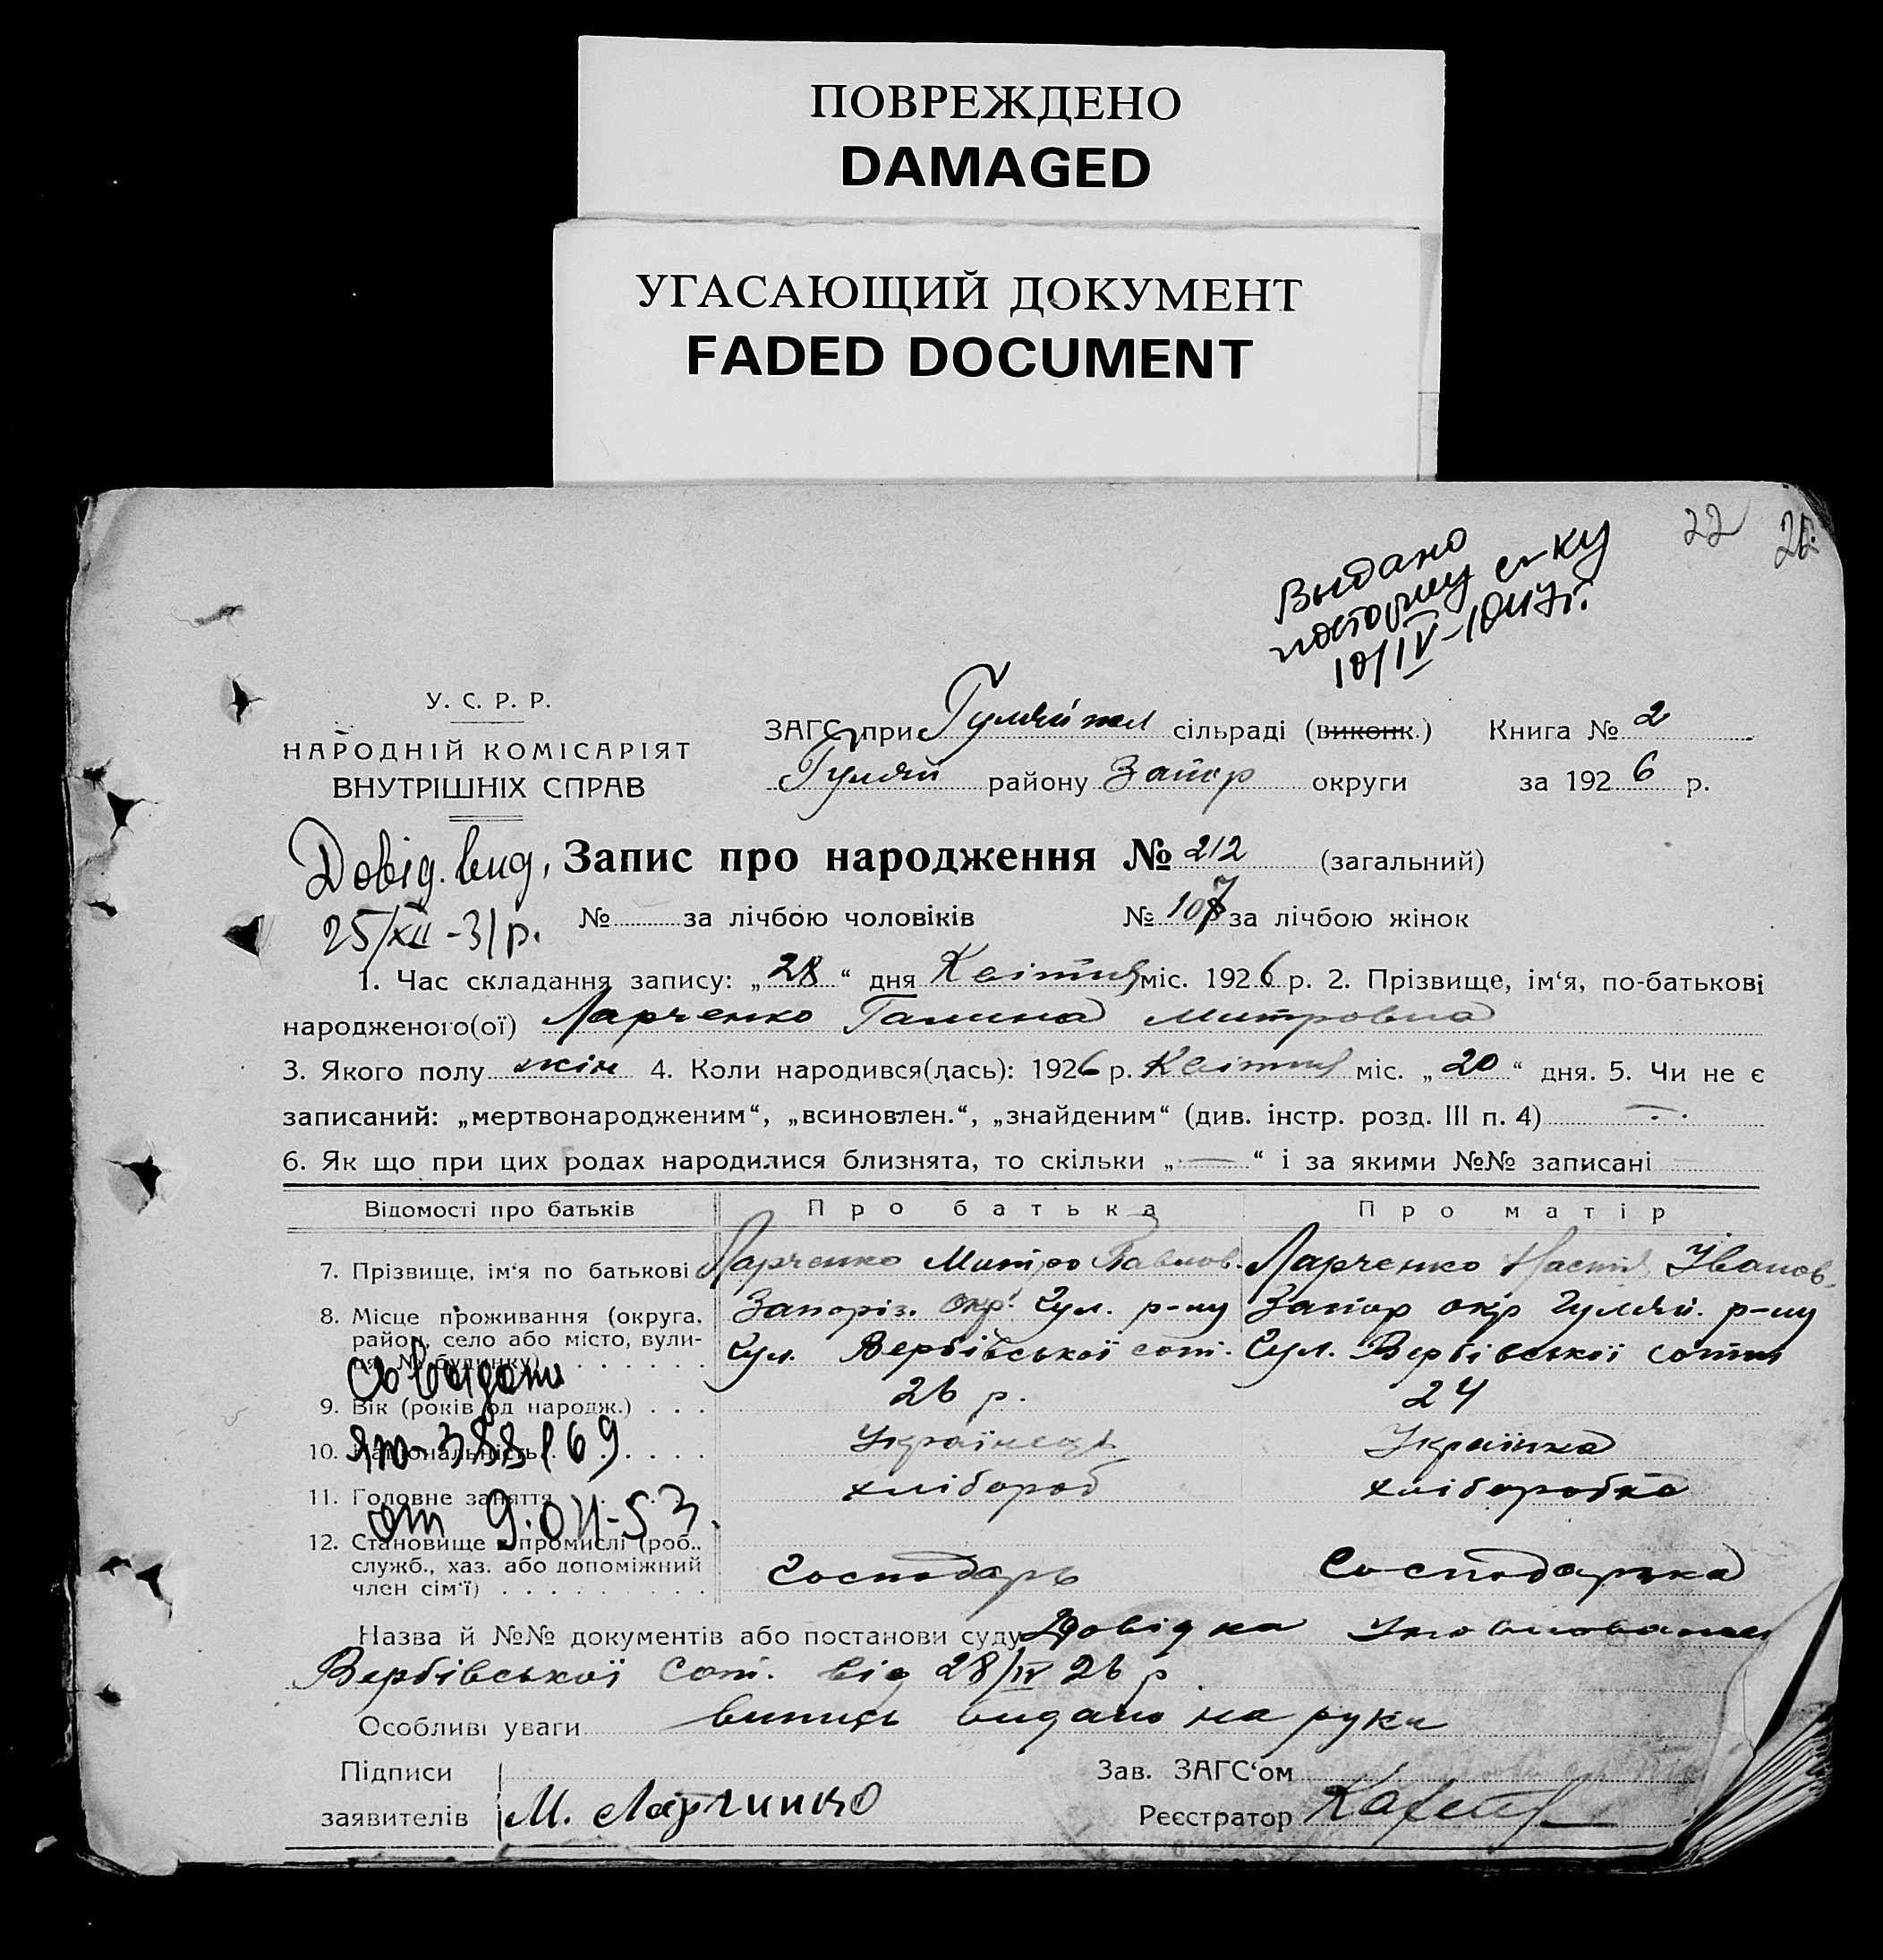 ПОВРЕЖДЕНО
DAMAGED
УГАСАЮЩИЙ ДОКУМЕНТ
FADED DOCUMENT
22
Выдано
повторную с-ку
10/IV-1947г.
У. С. Р. Р.
НАРОДНІЙ КОМІСАРІЯТ
ВНУТРІШНІХ СПРАВ
ЗАГС при Гуляйпол сільраді (виконк.) Книга № 2
Гуляй району Запор округи за 1926 р.
Довід. вид.
25/XII-31 р.
Запис про народження № 212 (загальний)
№ за лічбою чоловіків № 107 за лічбою жінок
1. Час складання запису: „28“ дня Квітня міс. 1926 р. 2. Прізвище, ім‘я, по-батькові
народженого(ої) Ларченко Галина Митровна
3. Якого полу жін 4. Коли народився(лась): 1926 р. Квітня міс. „20“ дня. 5. Чи не є
записаний: „мертвонародженим“, „всиновлен.“, „знайденим“ (див. інстр. розд. III п. 4) —
6. Як що при цих родах народилися близнята, то скільки „—“ і за якими №№ записані —
Відомості про батьків Про батька Про матір
7. Прізвище, ім‘я по батькові Ларченко Митро Павлов. Ларченко Настя Іванов.
8. Місце проживання (округа, Запоріз. окр. Гул. р-ну Запор окр Гуляй. р-ну
район, село або місто, вули-
ця, № будинку) Гул. Вербівської сот. Гул. Вербівської сотні
Св выдано
9. Вік (років од народж.) 26 р. 24
10. Національність Українець Українка
ЯЮ-388169
11. Головне заняття хлібороб хліборобка
от 9.04-53.
12. Становище в промислі (роб..
служб., хаз. або допоміжний
член сім‘ї) Господарь Господарька
Назва й №№ документів або постанови суду Довідка Уповноваж
Вербівської Сот. від 28/IV 26 р
Особливі уваги випись видано на руки
Підписи
заявителів М. Ларчинко
Зав. ЗАГС‘ом
Реєстратор